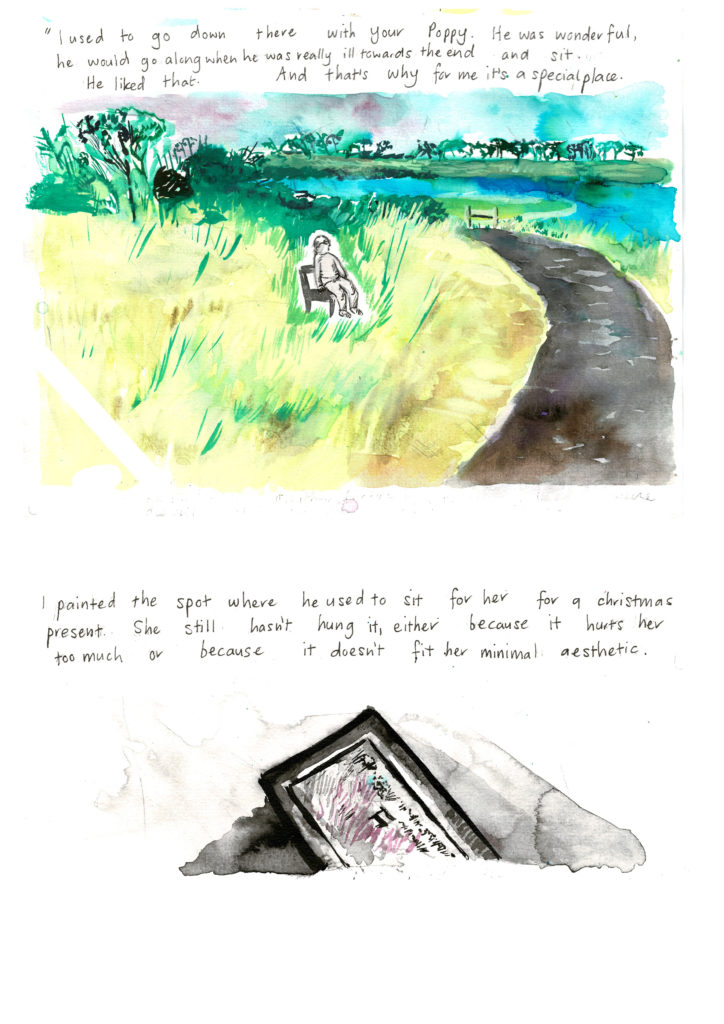 "I used to go down there with your Poppy. He was wonderful,
he would go along when he was really ill towards the end and sit.
He liked that. And that's why for me it's a special place.
I painted the spot where he used to sit for her for a christmas
present. She still hasn't hung it, either because it hurts her
too much or because it doesn't fit her minimal aesthetic.